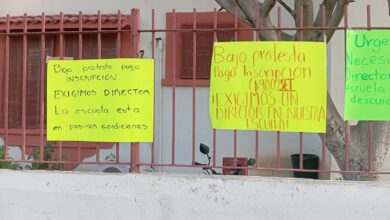 Bajo protesta pago
inscripción
Exigimos Director
La escuela esta
en pésimas condiciones
Bajo protesta
Pago Inscripción
($900) SET
¡EXIGIMOS UN
DIRECTOR EN NUESTRA
ESCUELA!
Urge
Necesi
Director
escuela
descu